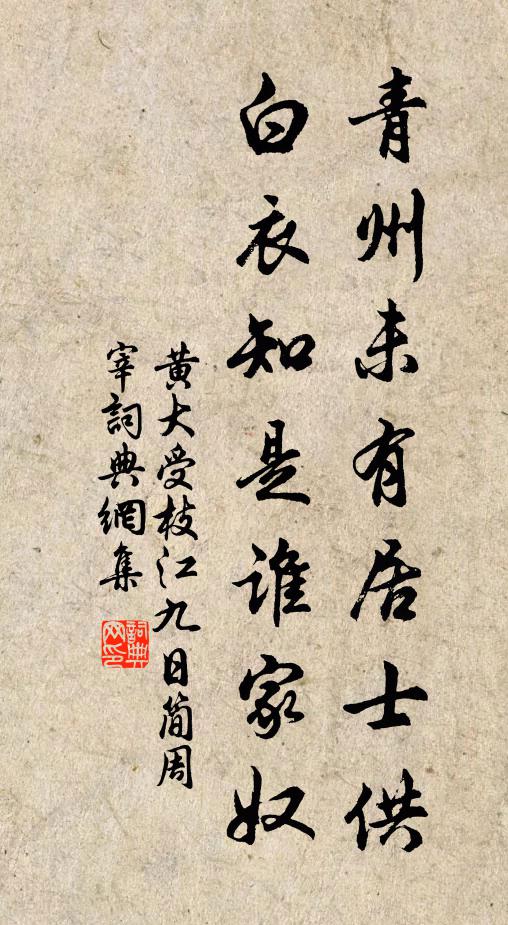 青州未有居士供
白衣知是谁家奴
黄大受枝江九日简周
宰詞典網集
詞典网印